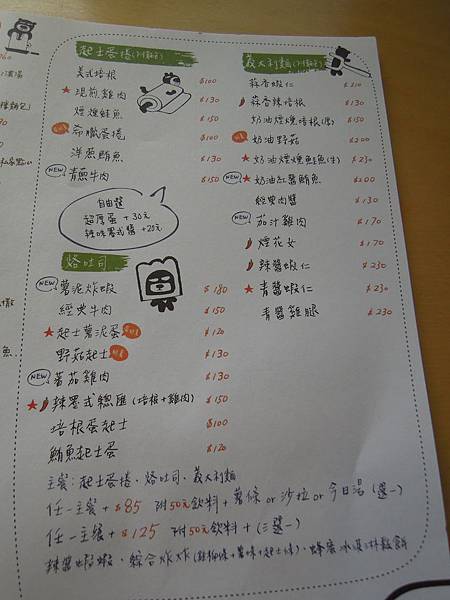 起士蛋捲
美式培根 $100
★ 現煎雞肉 $130
煙燻鮭魚 $150
蛋捲
洋蔥鮪魚 $130
NEW 青蔥牛肉 $150
自由選
超厚蛋 +30元
辣味墨式醬 +20元
烙吐司
NEW 薯泥炸蝦 $180
經典牛肉 $150
★起士薯泥蛋 $120
野菇起士 $130
NEW 蕃茄雞肉 $130
★ 辣墨式總匯 (培根+雞肉) $150
培根蛋起士 $100
鮪魚起士蛋 $120
義大利麵
蒜香蝦仁 $210
蒜香辣培根 $130
奶油煙燻培根 $150
奶油野菇 $200
★ 奶油煙燻鮭魚 $230
NEW ★奶油紅醬鮪魚 $200
經典肉醬 $130
NEW 茄汁雞肉 $170
煙花女 $170
辣醬蝦仁 $230
★ 青醬蝦仁 $230
青醬雞腿 $230
主餐:起士蛋捲、烙吐司、義大利麵
任一主餐 + $85 附50元飲料 + 薯條 or 沙拉 or 今日湯 (選一)
任一主餐 + $125 附50元飲料 + (三選一)
辣醬蝦蝦、綜合炸炸 (雞柳條+薯條+起士條)、蜂蜜冰淇淋鬆餅